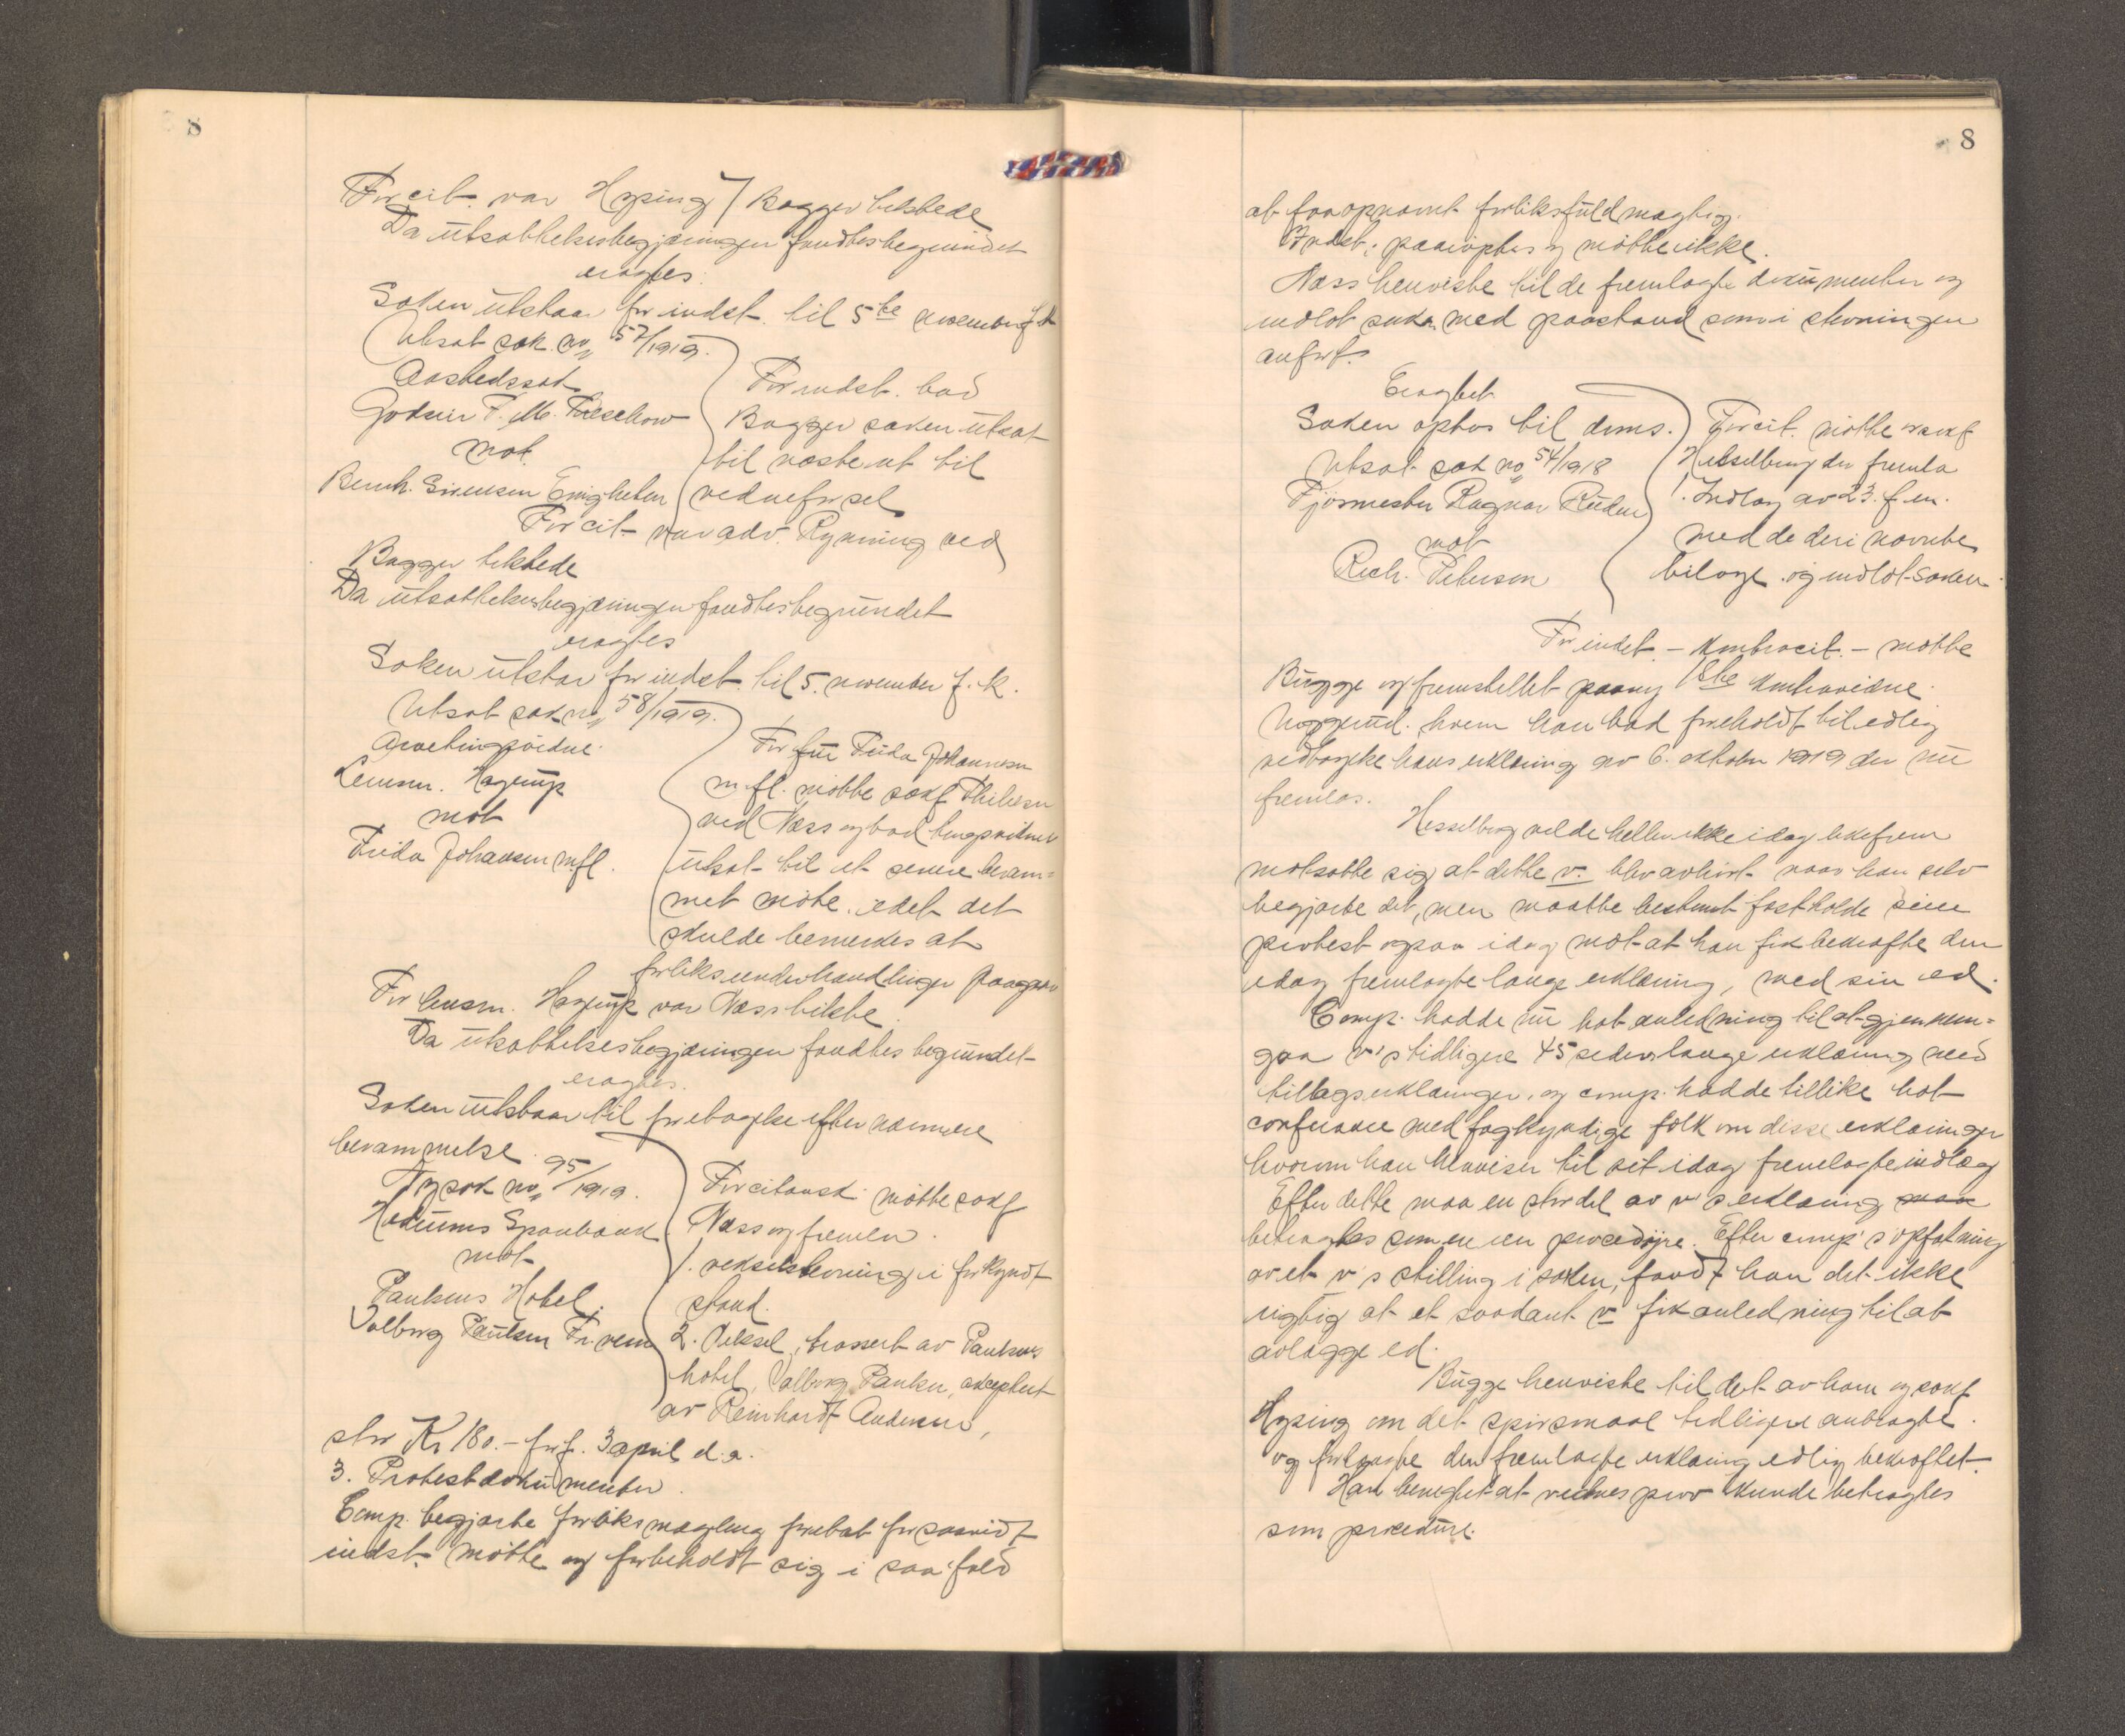 8
For cit. var Hysing v/ Bagger tilstede
Da utsættelsesbegjæringen fandtes begrundet
eragtes:
Saken utstaar for indst. til 5te november f.k.
Utsat sak no 57/1919.
Aastedssak
Godseier F. M. Treschow
mot
Bernh. Sørensen Enigheten
For indst. bad
Bagger saken utsat
til næste ret til
vedneførsel
For cit. var adv. Rynning ved
Bagger tilstede
Da utsættelsesbegjæringen fandtes begrundet
eragtes
Saken utstaar for indst. til 5. november f.k.
Utsat sak no 58/1919.
Lensm. Hagtrup
mot
Frida Johansen m.fl.
For fru Frida Johannesen
m.fl. møtte sakf.
ved Næss og bad tingsvidnet
utsat til et senere beram-
met møte, idet det
skulde bemerkes at
forliksunderhandlinger paagaar
For lensm. Hagtrup var Næss tilstede.
Da utsættelsesbegjæringen fandtes begrundet
eragtes.
Saken utstaar til foretagelse efter nærmere
berammelse.
Ny sak no 95/1919.
Hedrums Sparebank
mot
Paulsens Hotel,
Valborg Paulsen
For citanten møtte sakf
Næss og fremla.
1. vekselstevning i forkyndt
stand.
2. Veksel, trassert av Paulsens
hotel, Valborg Paulsen, akceptert
av Reinhardt Andersen,
stor Kr 180.- forf. 3 april d.a.
3. Protestdokumenter.
Comp. begjærte forliksmægling foretat forsaavidt
indst. møtte og forbeholdt sig i saa fald
8
at faa opnævnt forliksfuldmægtig.
Indst. paaroptes og møtte ikke.
Næss henviste til de fremlagte dokumenter og
indlot saken med paastand som i stevningen
anført.
Eragtet
Saken optas til doms.
Utsat sak no 54/1918
Ragnar Ruden
mot
Rich. Petersen
For cit. møtte o.r.sakf
Hesselberg der fremla
1. Indlæg av 23. f.m.
med de deri nævnte
bilage og indlot saken.
For indst. – kontracit. – møtte
Bugge og fremstillet paany 1ste kontravidne
hvem han bad foreholdt til edelig
vedtagelse hans erklæring av 6. oktober 1919 der nu
fremlas.
Hesselberg vilde heller ikke idag likefrem
motsætte sig at dette v. blev avhørt naar han selv
begjærte det, men maatte bestemt fastholde sin
protest ogsaa idag mot at han fik bekræfte den
idag fremlagte lange erklæring, med sin ed.
Comp. hadde nu hat anledning til at gjennem-
gaa v's tidligere 45 siders lange erklæring med
tillægserklæringer, og comp. hadde tillike hat
conferance med fagkyndige folk om disse erklæringer
hvorom han henviser til sit idag fremlagte indlæg
Efter dette maa en stor del av v's erklæring
betragtes som en ren procedyre. Efter comp's opfatning
av et v's stilling i saken, fandt han det ikke
rigtig at et saadant v. fik anledning til at
avlægge ed.
Bugge henviste til det av ham og sakf
Hysing om det spørsmaal tidligere anbragte.
og forlangte den fremlagte erklæring edlig bekræftet.
Han benegtet at vidnes prov kunde betragtes
som procedure.